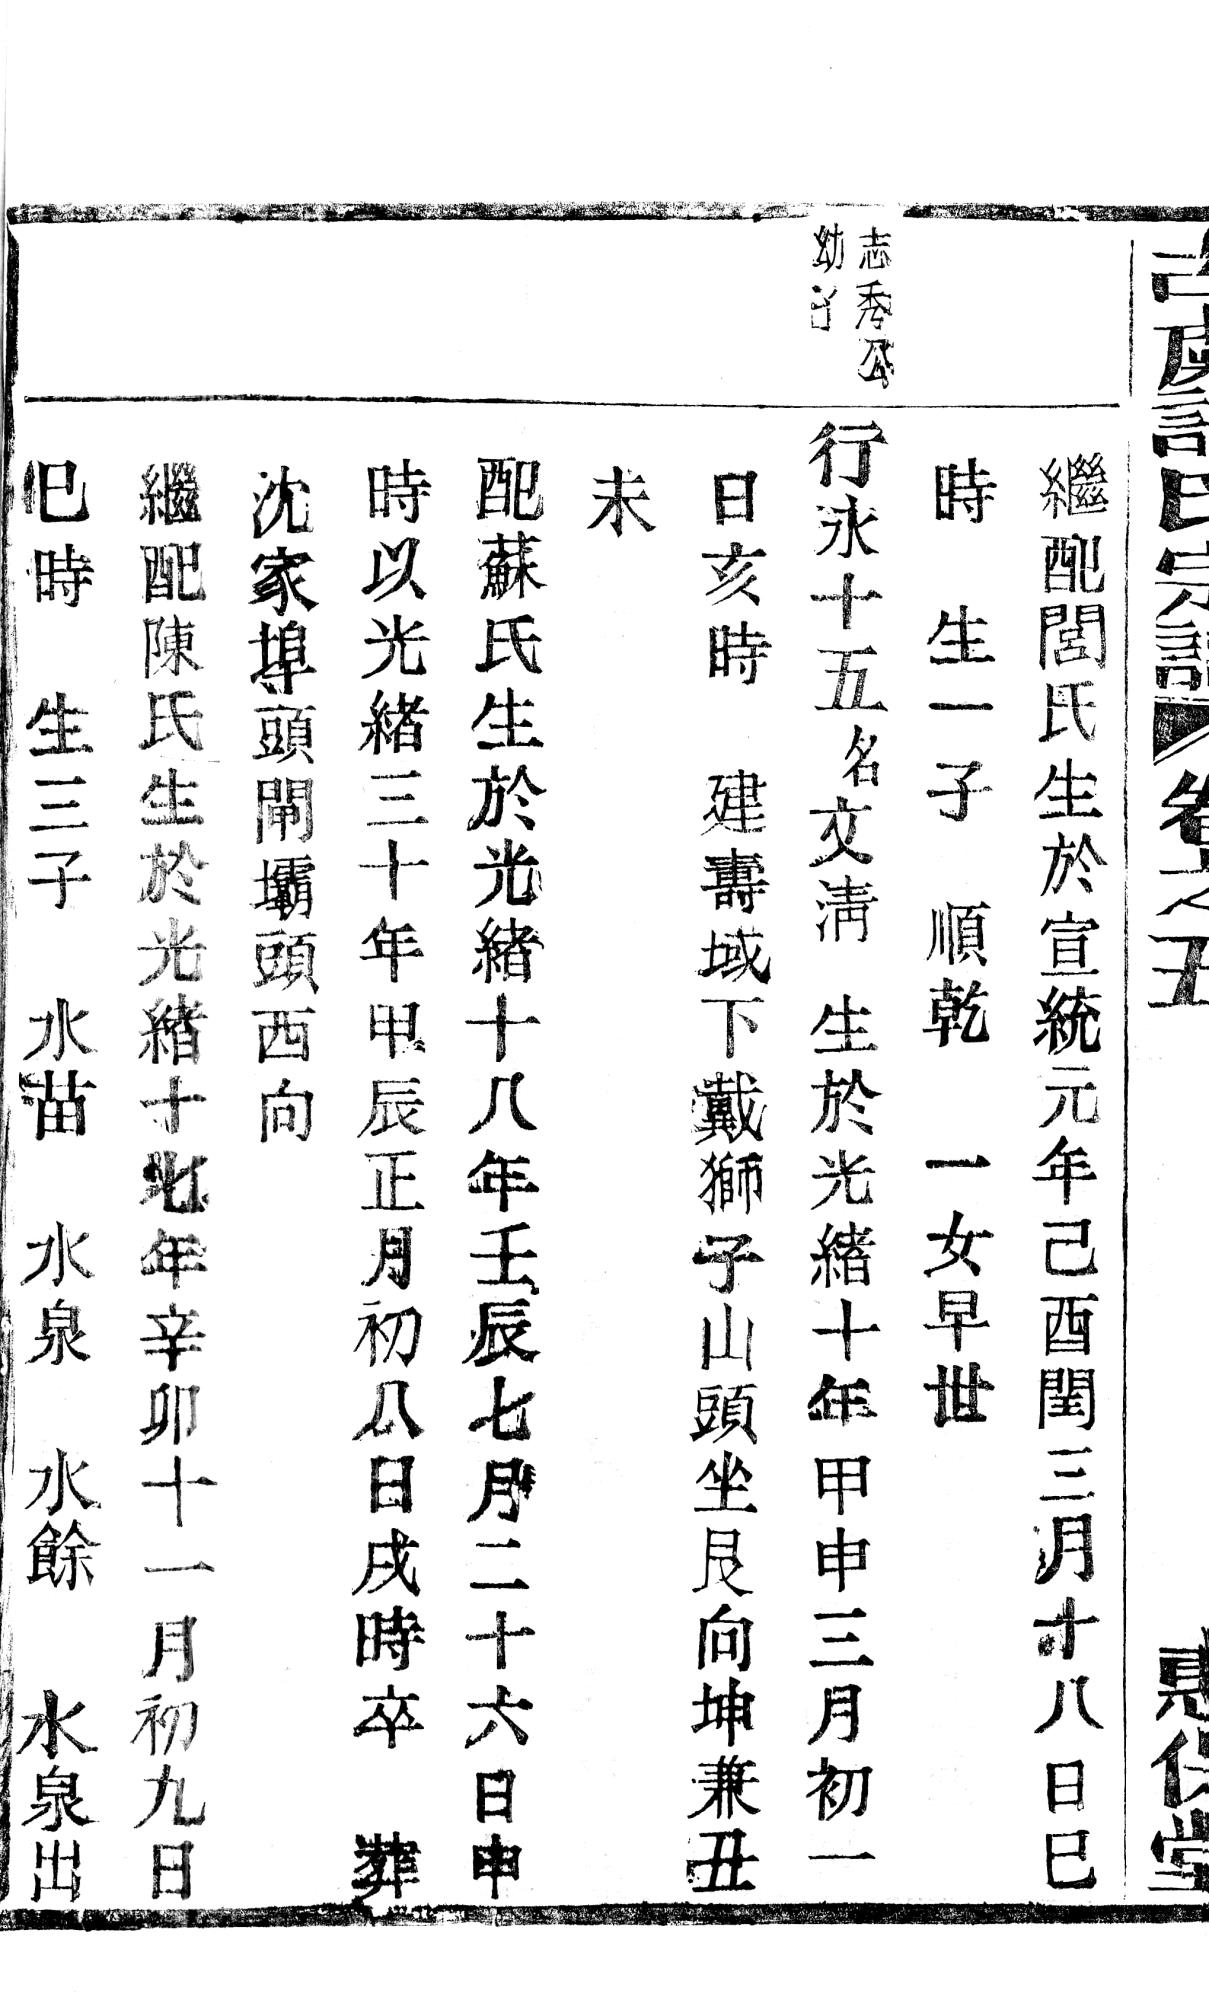 古虞許氏宗譜 卷之五 惠保堂
繼配閭氏生於宣統元年己酉閏三月十八日巳
時 生一子 順乾 一女早世
志秀公
幼子
行永十五名文淸 生於光緖十年甲申三月初一
日亥時 建壽域下戴獅子山頭坐艮向坤兼丑
未
配蘇氏生於光緖十八年壬辰七月二十六日申
時以光緖三十年甲辰正月初八日戌時卒 葬
沈家埠頭閘壩頭西向
繼配陳氏生於光緖十七年辛卯十一月初九日
巳時 生三子 水苗 水泉 水餘 水泉出